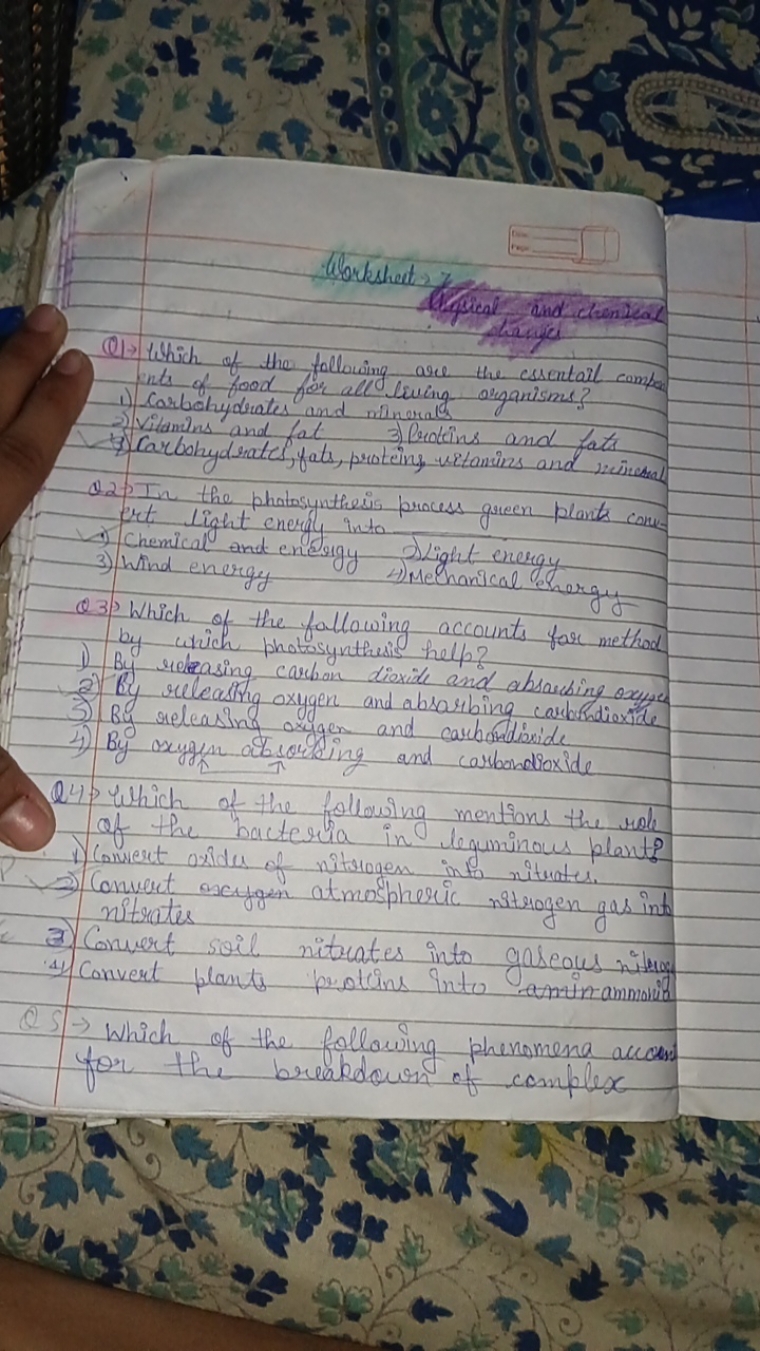 Worksheet → 7
Physical and chemical
changes
Q1→ Which of the following are the essentail compon
ents of food for all living organisms?
1) Carbohydrates and minerals
2) Vitamins and fat 3) Proteins and fats
4) Carbohydrates, fats, proteins, vitamins and mineral
Q2→ In the photosynthesis process green plants conv-
ert light energy into
1) Chemical and energy 2) Light energy
3) Wind energy 4) Mechanical energy
Q3→ Which of the following accounts for method
by which photosynthesis help?
1) By releasing carbon dioxide and absorbing oxygen
2) By releasing oxygen and absarbing carbondioxide
3) By releasing oxygen and carbondioxide
4) By oxygen absorbing and carbondioxide
Q4→ Which of the following mentions the role
of the bacteria in leguminous plant?
1) Convert oxides of nitrogen into nitrates.
2) Convert oxcygen atmospheric nitrogen gas into
nitrates
3) Convert soil nitrates into gaseous nitrogen
4) Convert plants protins into amin ammonia
Q5→ Which of the following phenomena account
for the breakdown of complex